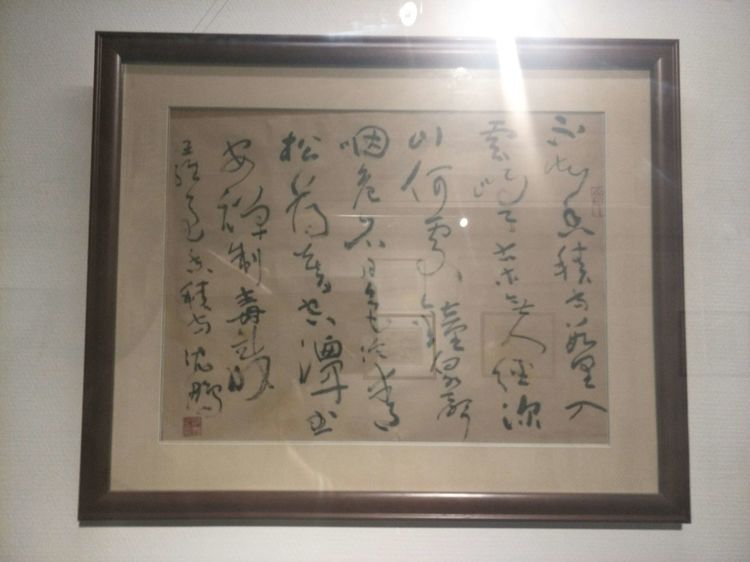 不知香積寺數里入
雲峰古木無人徑深
山何處鐘泉聲
咽危石日色冷青
松薄暮空潭曲
安禪制毒龍
王維過香積寺沈鵬